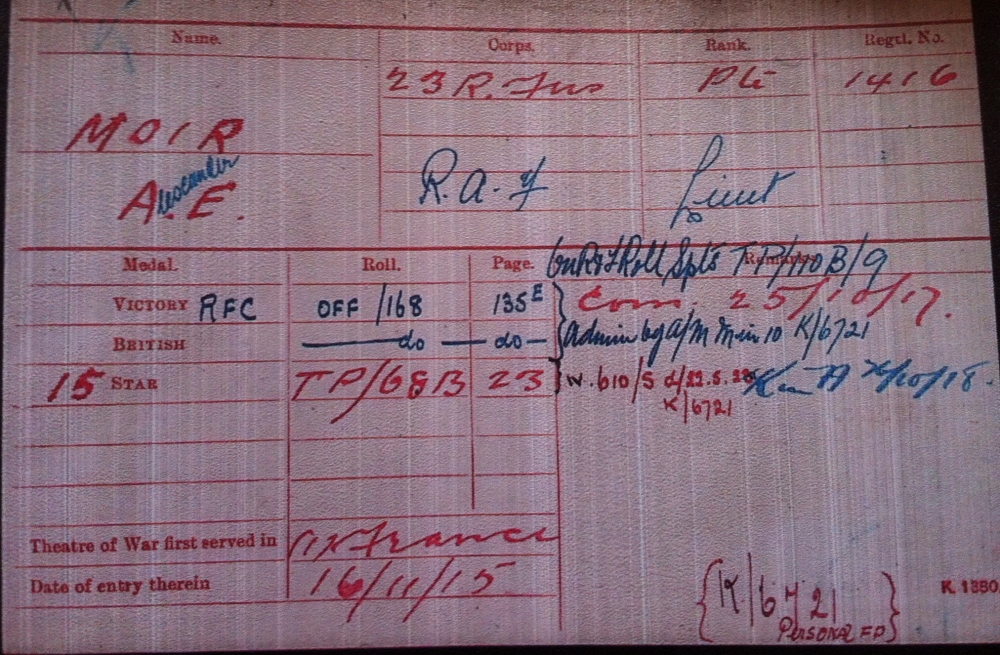 Name. Corps. Rank. Regtl. No.
23 R. Fus Pte 1416
MOIR
Alexander
A. E. R.A.F Lieut
Medal. Roll. Page. Remarks.
On R & F Roll Spls TP/110 B/9
VICTORY RFC OFF/168 135E Com. 25/10/17.
BRITISH do do Admin by A/M Min 10 K/6721
15 STAR TP/68B 23 W.610/S d/22.5.20 K in A /10/18.
K/6721
Theatre of War first served in (1) France
Date of entry therein 16/11/15
{K/6721} K. 1380
PERSONAL FD